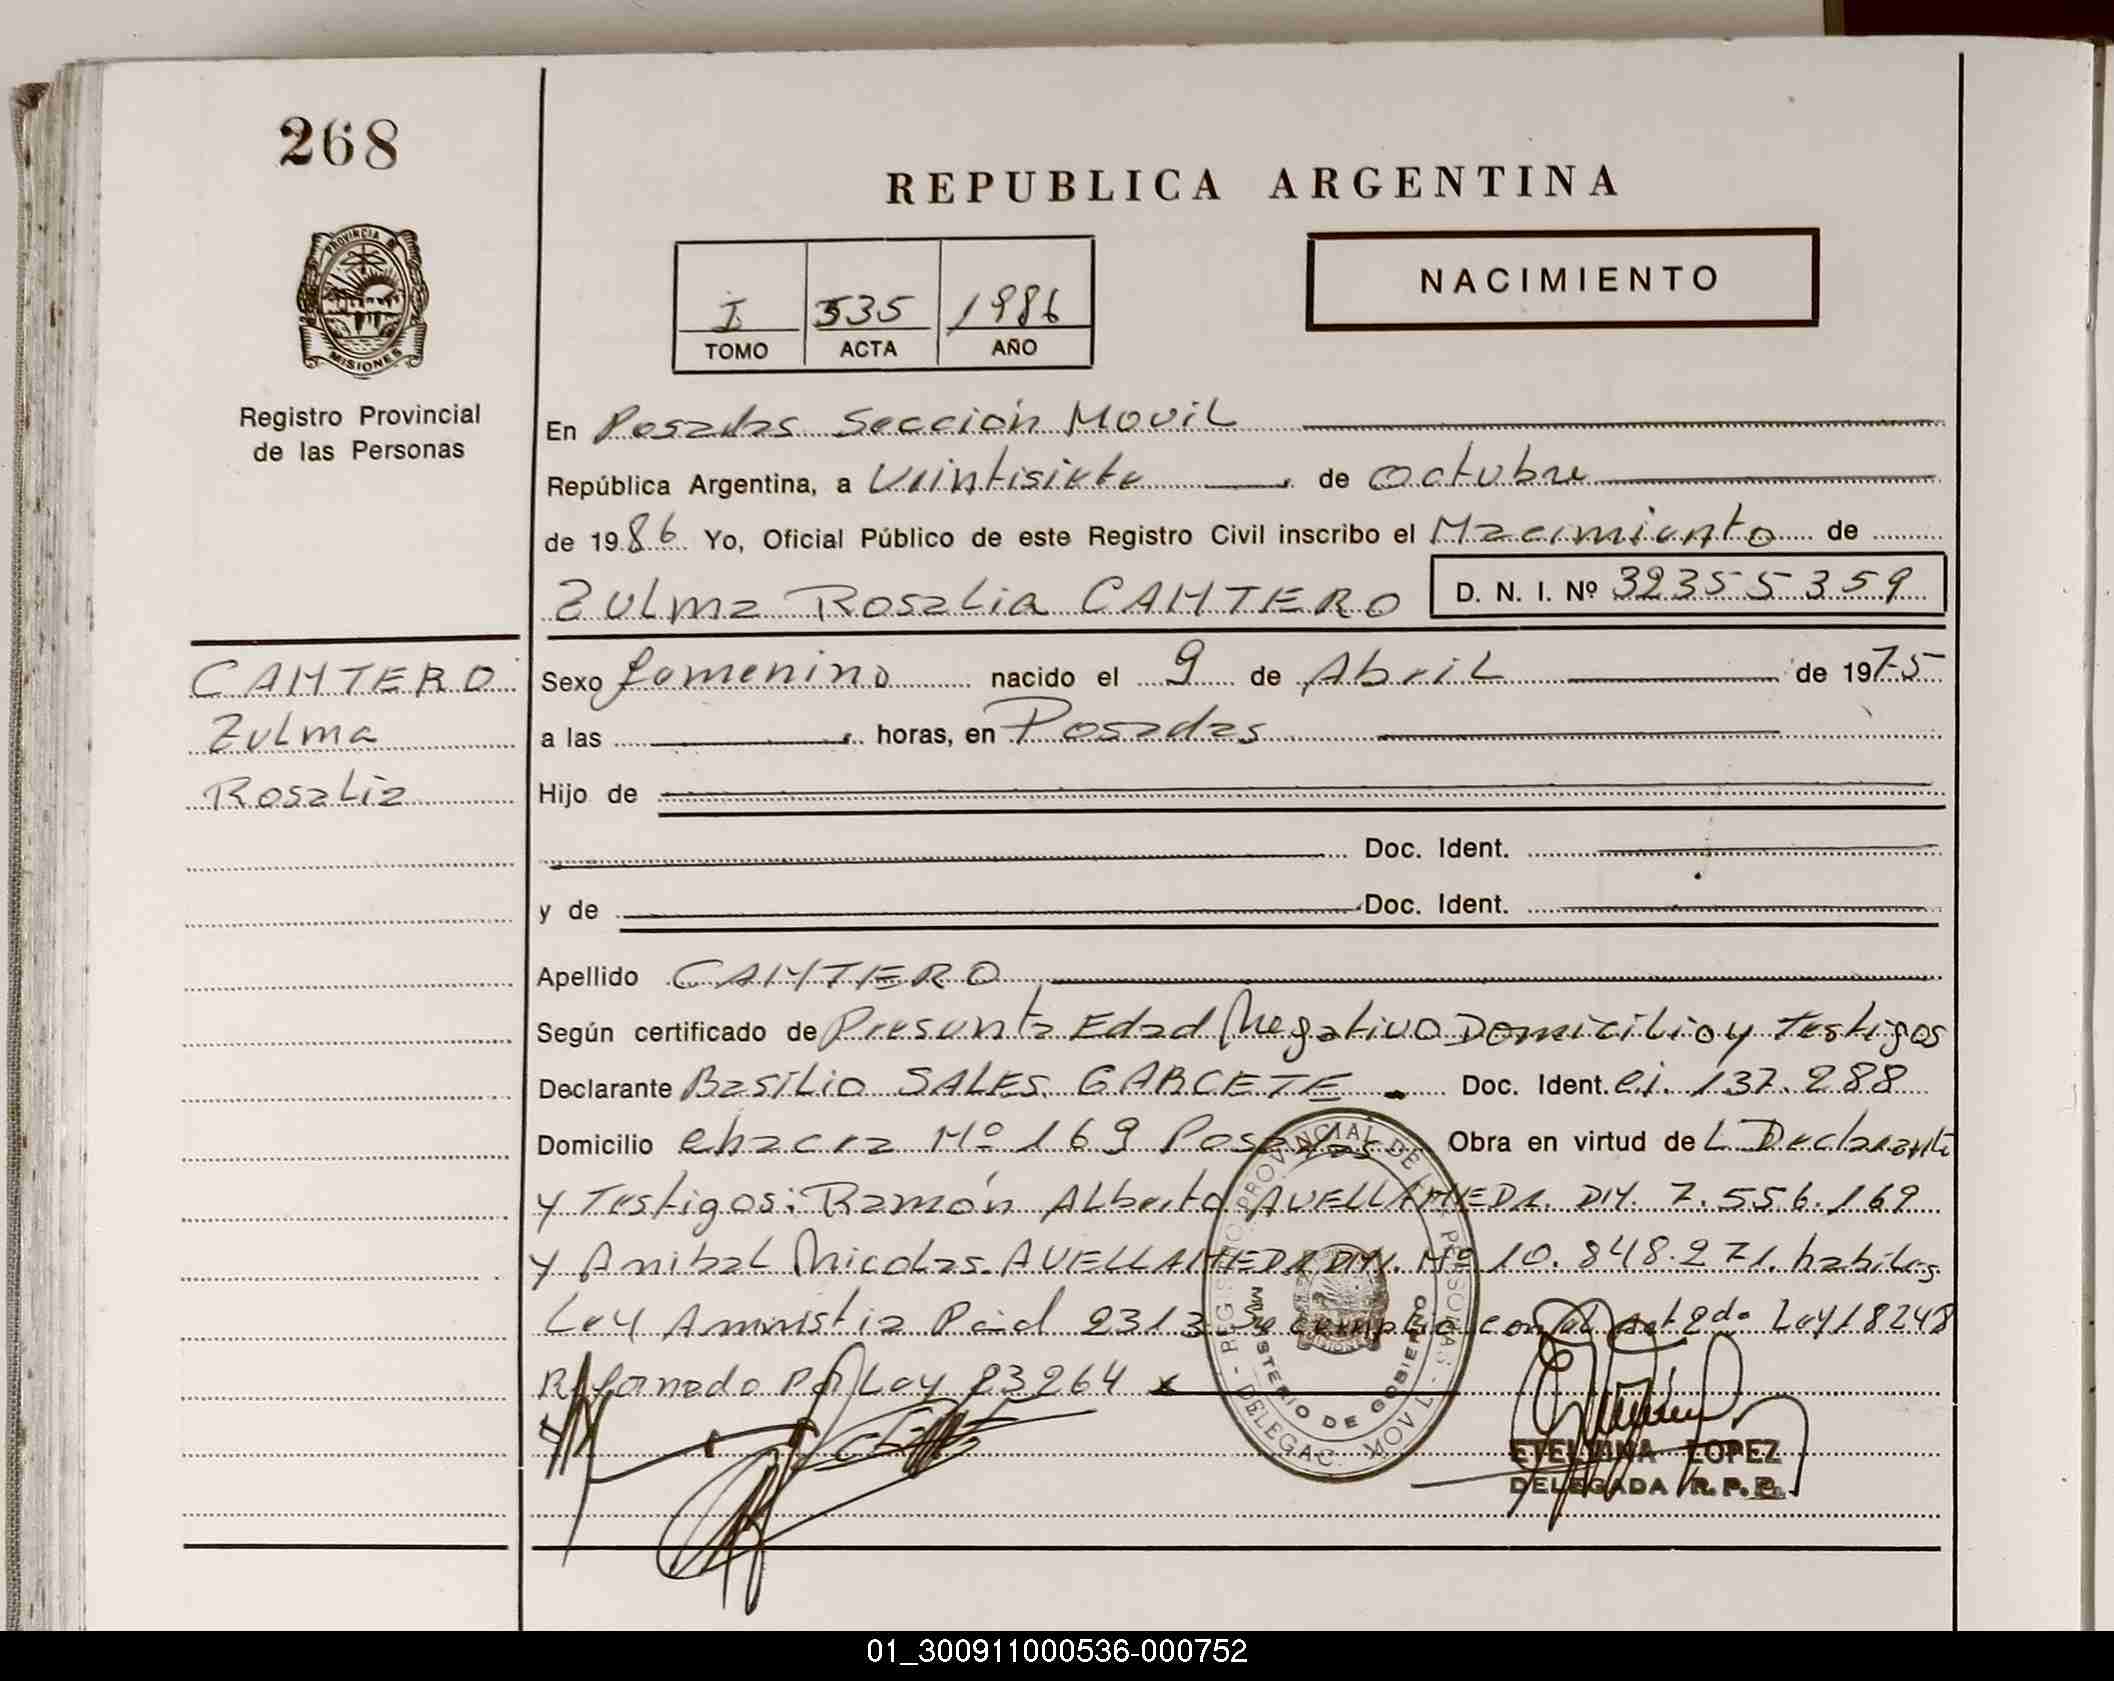 268
REPUBLICA ARGENTINA
PROVINCIA DE
MISIONES
Registro Provincial
de las Personas
I 535 1986
TOMO ACTA AÑO
NACIMIENTO
En Posadas Sección Movil
República Argentina, a Veintisiete de octubre
de 1986 Yo, Oficial Público de este Registro Civil inscribo el Nacimiento de
Zulma Rosalia CANTERO D. N. I. Nº 32355359
CANTERO
Zulma
Rosalia
Sexo femenino nacido el 9 de Abril de 1975
a las horas, en Posadas
Hijo de
Doc. Ident.
y de Doc. Ident.
Apellido CANTERO
Según certificado de Presunta Edad Negativo Domicilio y Testigos
Declarante Basilio SALES GARCETE Doc. Ident. ci. 137.288
Domicilio chacra Nº 169 Posadas Obra en virtud de L Declarante
y Testigos: Ramón Alberto AVELLANEDA. DNI. 7.556.169
y Anibal Nicolas AVELLANEDA DNI. Nº 10.848.271. habiles
Ley Amnistia Pcial 2313 Se cumplio con el art 2do Ley 18248
Reformado por Ley 23264 x
REGISTRO PROVINCIAL DE LAS PERSONAS - DELEGAC. MOVIL -
MINISTERIO DE GOBIERNO
ETELVINA LOPEZ
DELEGADA R. P. P.
01_300911000536-000752